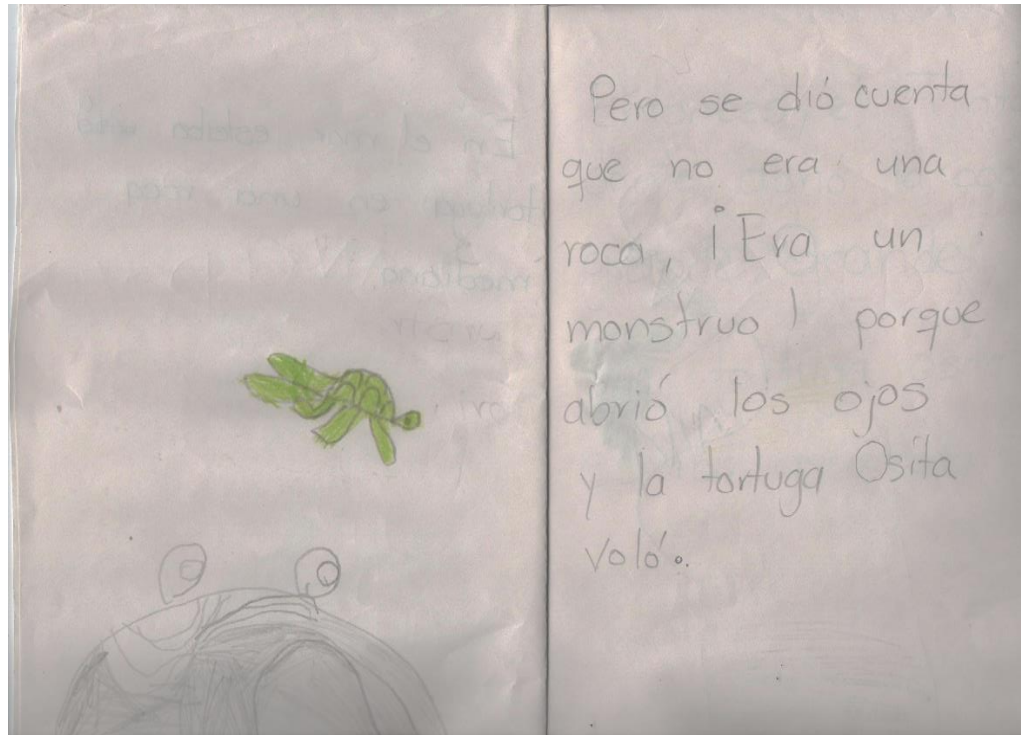 Pero se dió cuenta
que no era una
roca, ¡Era un
monstruo! porque
abrió los ojos
y la tortuga Osita
voló.